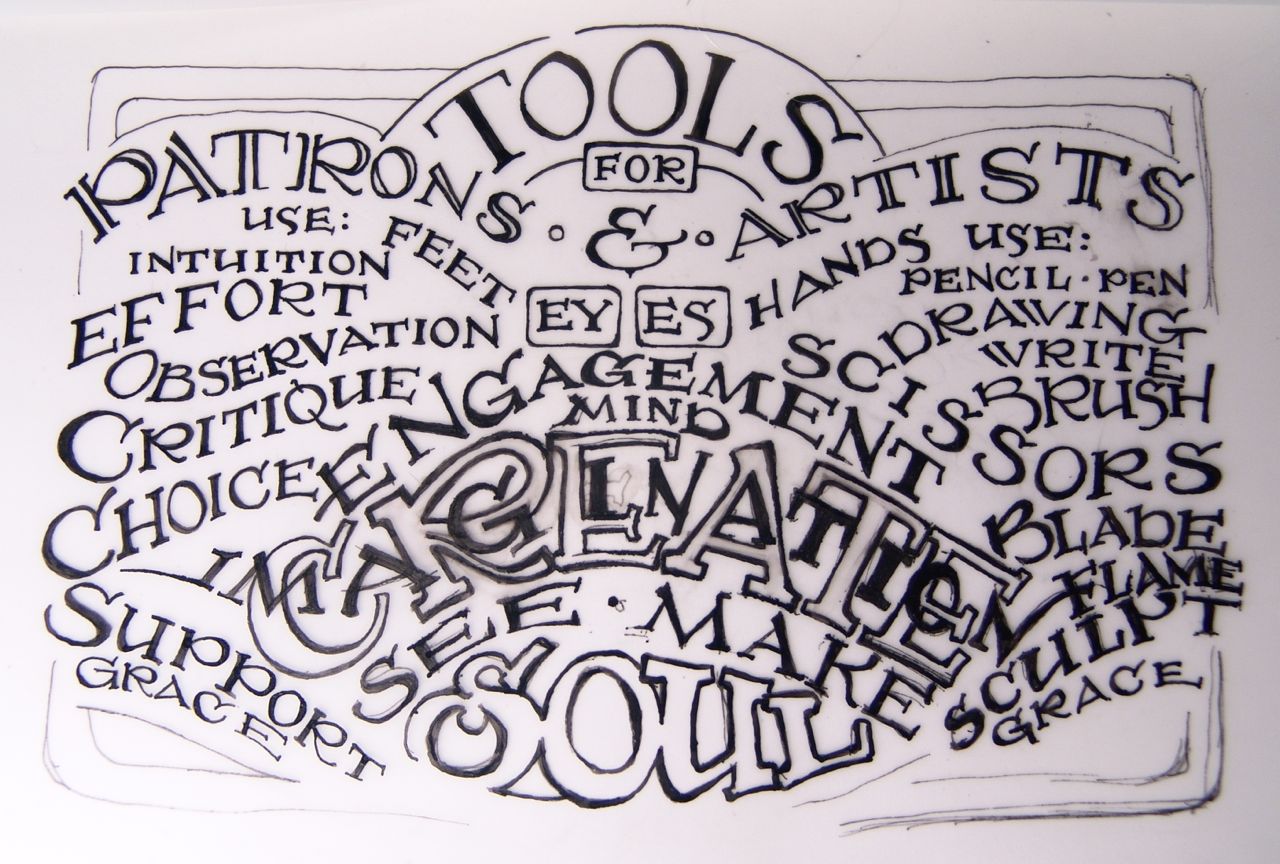 TOOLS
FOR
PATRONS · & · ARTISTS
USE:
FEET
INTUITION
EFFORT
OBSERVATION
CRITIQUE
CHOICE
SUPPORT
GRACE
EYES
ENGAGEMENT
MIND
CREATE
IMAGINATION
SEE · MAKE
& SOUL
HANDS
USE:
PENCIL · PEN
DRAWING
WRITE
BRUSH
SCISSORS
BLADE
FLAME
SCULPT
GRACE